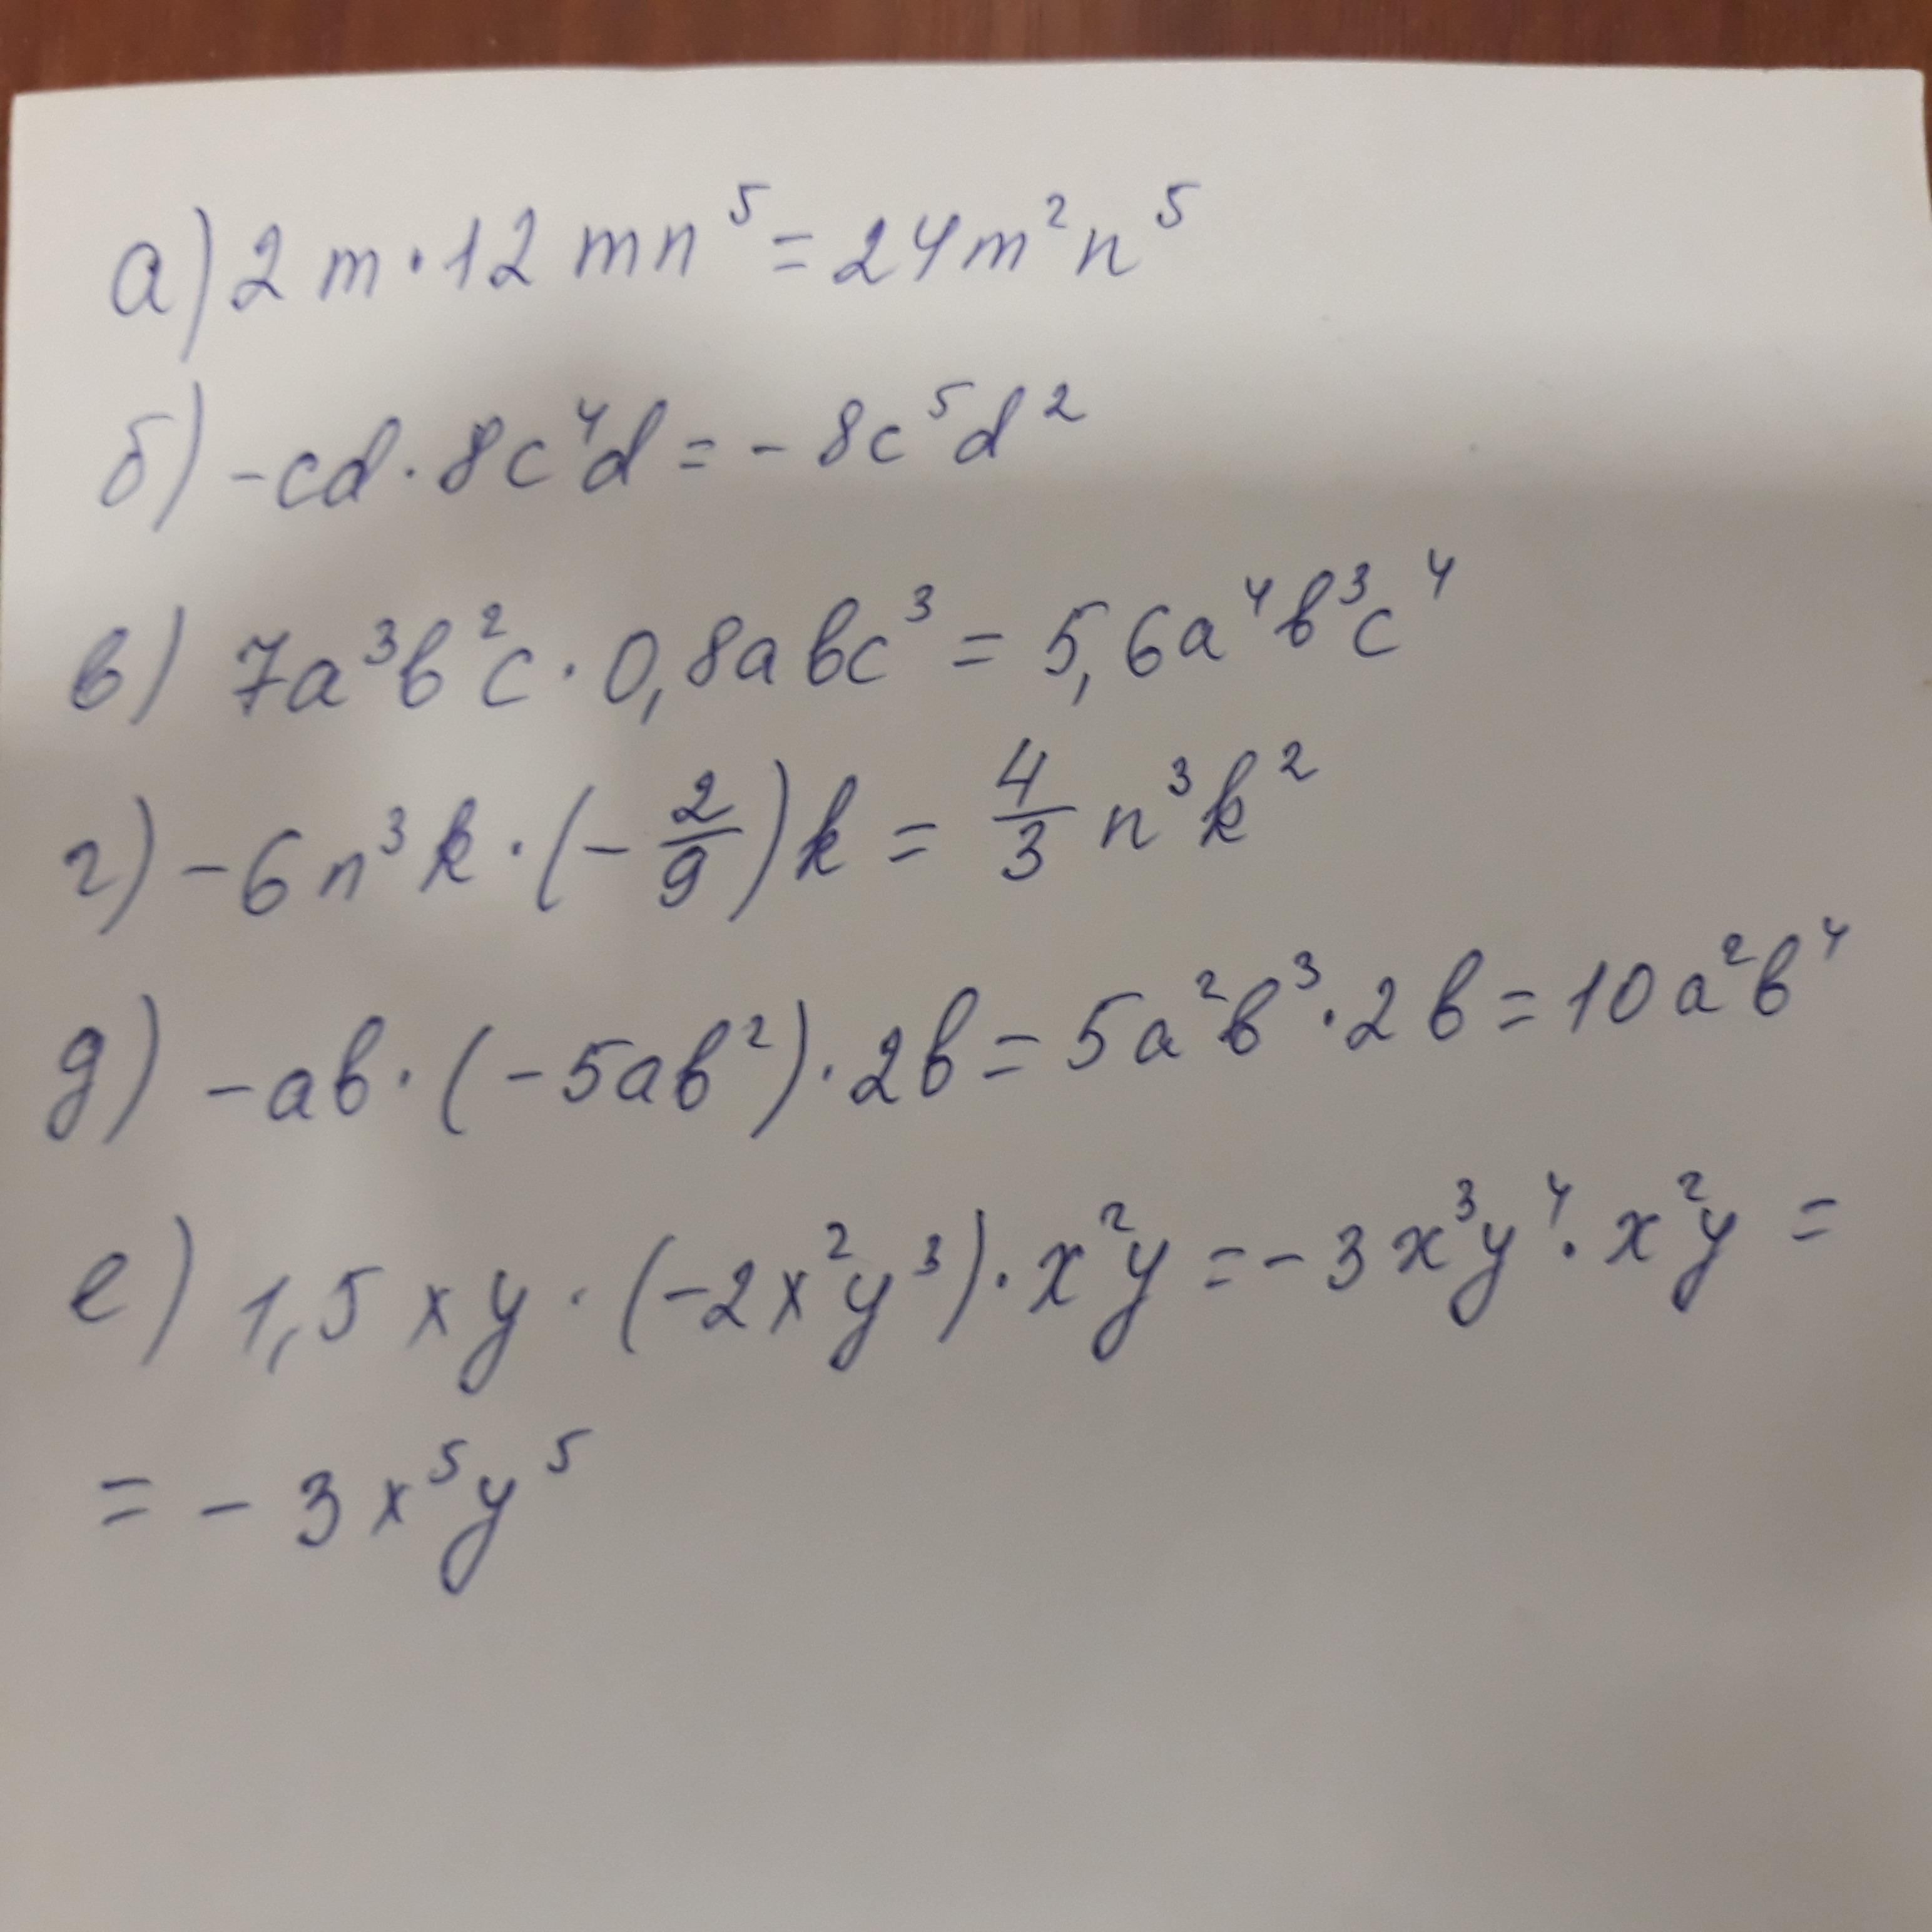 а) 2m · 12mn⁵ = 24m²n⁵
б) -cd · 8c⁴d = - 8c⁵d²
в) 7a³b²c · 0,8abc³ = 5,6a⁴b³c⁴
г) -6n³k · (-2/9)k = 4/3 n³k²
д) -ab · (-5ab²) · 2b = 5a²b³ · 2b = 10a²b⁴
е) 1,5xy · (-2x²y³) · x²y = - 3x³y⁴ · x²y =
= - 3x⁵y⁵